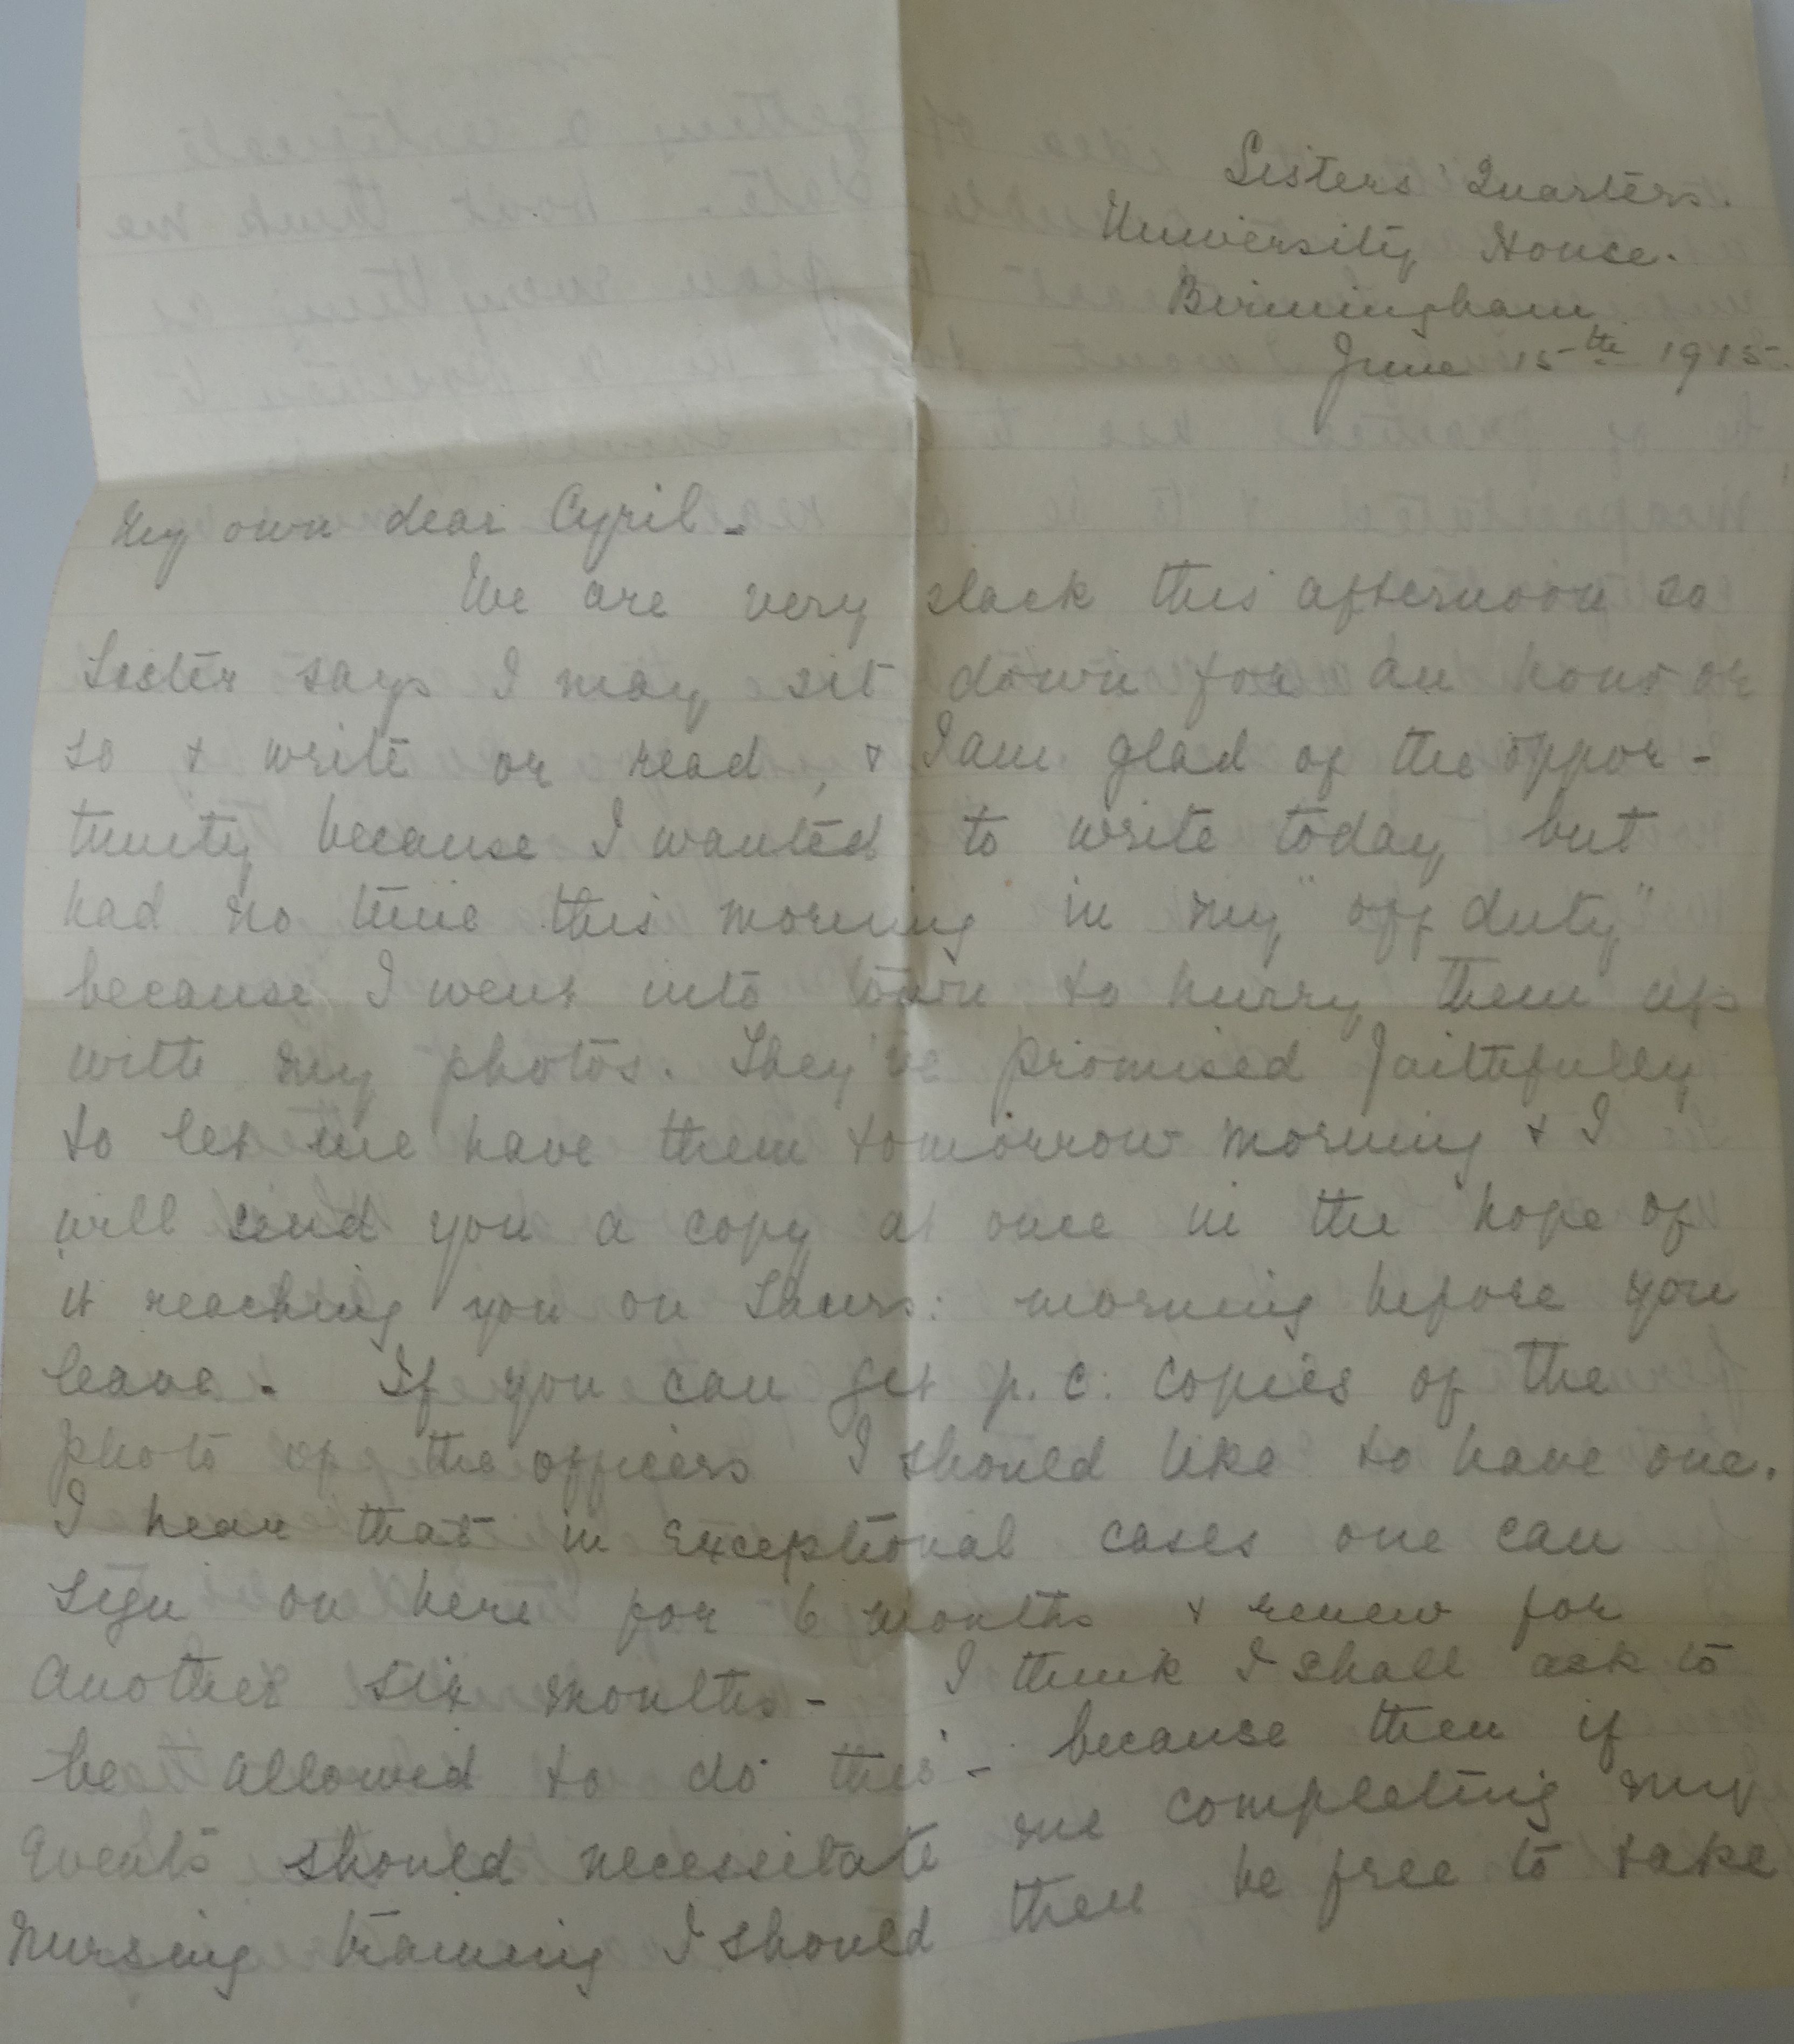 Sisters' Quarters.
University House.
Birmingham.
June 15th 1915.
My own dear Cyril -
We are very slack this afternoon so
Sister says I may sit down for an hour or
so & write or read, & I am glad of the oppor-
tunity because I wanted to write today but
had no time this morning in my "off duty"
because I went into town to hurry them up
with my photos. They've promised faithfully
to let me have them tomorrow morning & I
will send you a copy at once in the hope of
it reaching you on Thurs: morning before you
leave - If you can get p. c: copies of the
photo of the officers I should like to have one.
I hear that in exceptional cases one can
sign on here for 6 months & renew for
another six months - I think I shall ask to
be allowed to do this - because then if
events should necessitate me completing my
nursing training I should then be free to take